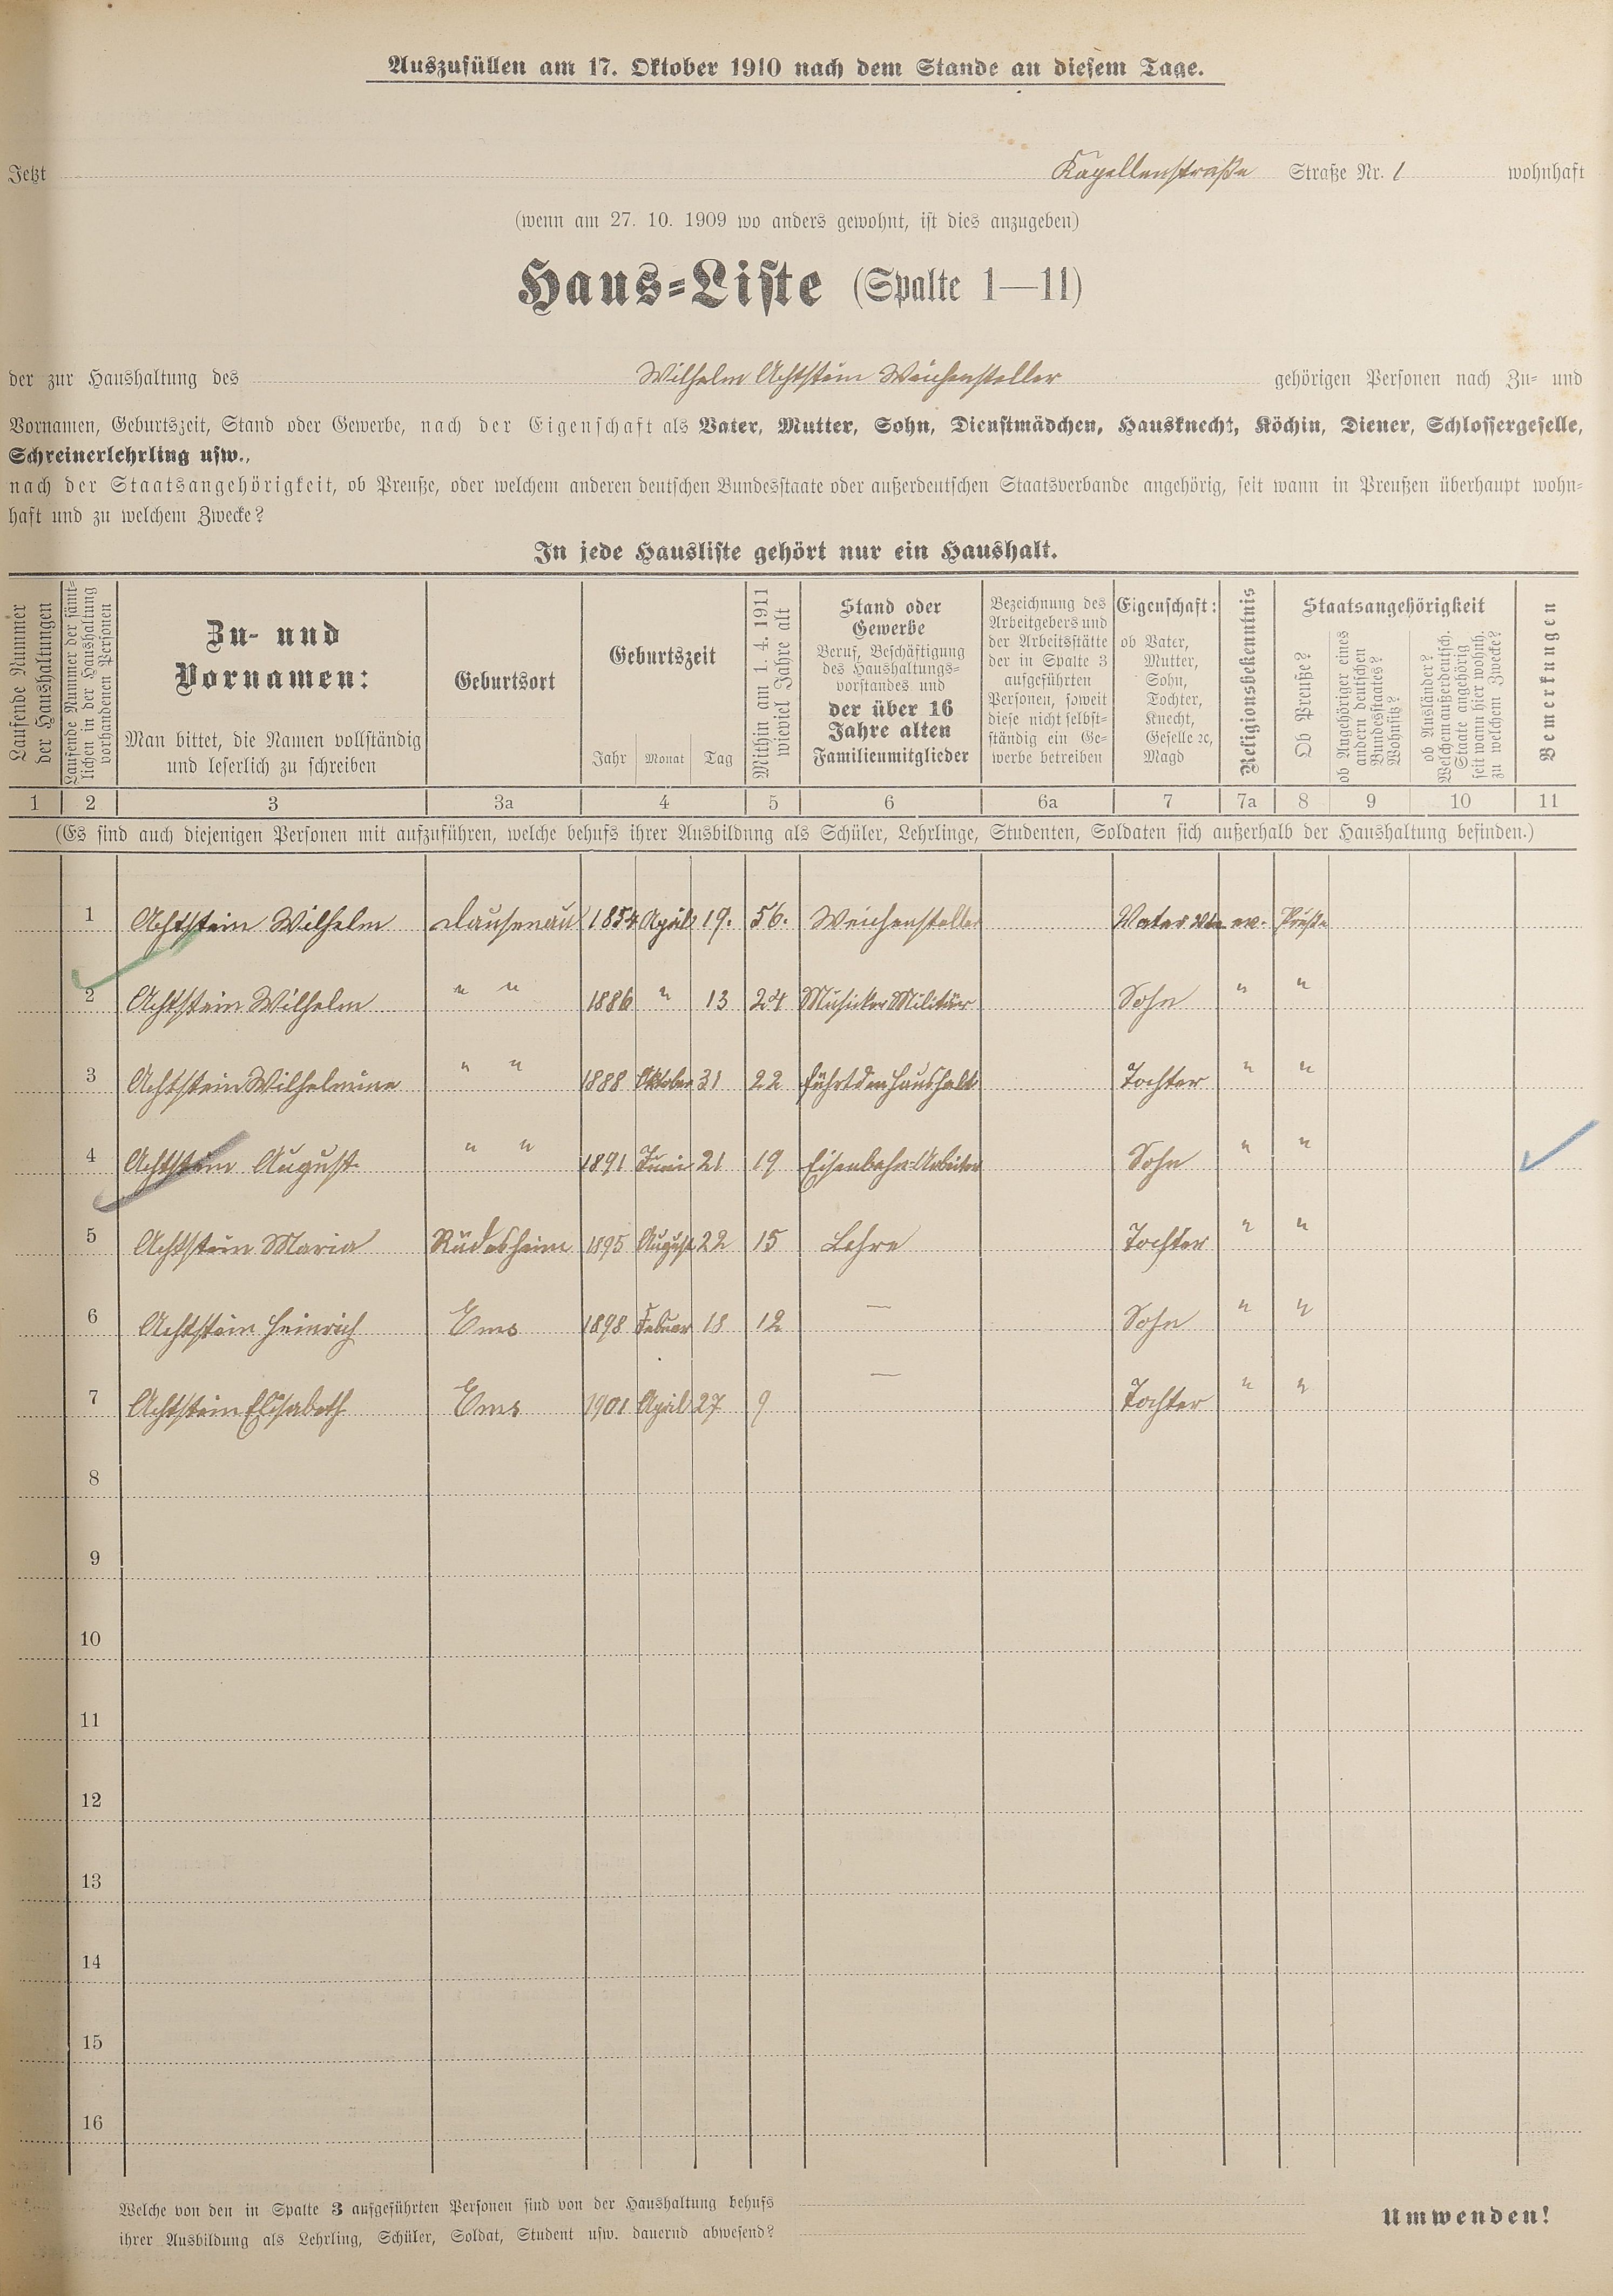 Auszufüllen am 17. Oktober 1910 nach dem Stande an diesem Tage.
Jetzt Kapellenstraße Straße Nr. 1 wohnhaft
(wenn am 27. 10. 1909 wo anders gewohnt, ist dies anzugeben)
Haus=Liste (Spalte 1—11)
der zur Haushaltung des Wilhelm Achtstein Weichensteller gehörigen Personen nach Zu= und
Vornamen, Geburtszeit, Stand oder Gewerbe, nach der Eigenschaft als Vater, Mutter, Sohn, Dienstmädchen, Hausknecht, Köchin, Diener, Schlossergeselle,
Schreinerlehrling usw.,
nach der Staatsangehörigkeit, ob Preuße, oder welchem anderen deutschen Bundesstaate oder außerdeutschen Staatsverbande angehörig, seit wann in Preußen überhaupt wohn=
haft und zu welchem Zwecke?
In jede Hausliste gehört nur ein Haushalt.
Laufende Nummer
der Haushaltungen
Laufende Nummer der sämt=
lichen in der Haushaltung
vorhandenen Personen
Zu- und
Vornamen:
Man bittet, die Namen vollständig
und leserlich zu schreiben
Geburtsort
Geburtszeit
Jahr Monat Tag
Mithin am 1. 4. 1911
wieviel Jahre alt
Stand oder
Gewerbe
Beruf, Beschäftigung
des Haushaltungs=
vorstandes und
der über 16
Jahre alten
Familienmitglieder
Bezeichnung des
Arbeitgebers und
der Arbeitsstätte
der in Spalte 3
aufgeführten
Personen, soweit
diese nicht selbst=
ständig ein Ge=
werbe betreiben
Eigenschaft:
ob Vater,
Mutter,
Sohn,
Tochter,
Knecht,
Geselle ꝛc,
Magd
Religionsbekenntnis
Staatsangehörigkeit
Ob Preuße?
ob Angehöriger eines
andern deutschen
Bundesstaates?
Wohnsitz?
ob Ausländer?
Welchem außerdeutsch.
Staate angehörig
seit wann hier wohnh.
zu welchem Zwecke?
Bemerkungen
1 2 3 3a 4 5 6 6a 7 7a 8 9 10 11
(Es sind auch diejenigen Personen mit aufzuführen, welche behufs ihrer Ausbildung als Schüler, Lehrlinge, Studenten, Soldaten sich außerhalb der Haushaltung befinden.)
1 Achtstein Wilhelm Dausenau 1854 April 19. 56. Weichensteller Vater ev. Preuße
2 Achtstein Wilhelm " " 1886 " 13 24 Musiker Militär Sohn " "
3 Achtstein Wilhelmine " " 1888 Oktober 31 22 führt den Haushalt Tochter " "
4 Achtstein August " " 1891 Juni 21 19 Eisenbahn-Arbeiter Sohn " "
5 Achtstein Maria Rüdesheim 1895 August 22 15 Lehre Tochter " "
6 Achtstein Heinrich Ems 1898 Februar 18 12 — Sohn " "
7 Achtstein Elisabeth Ems 1901 April 27 9 — Tochter " "
8
9
10
11
12
13
14
15
16
Welche von den in Spalte 3 aufgeführten Personen sind von der Haushaltung behufs
ihrer Ausbildung als Lehrling, Schüler, Soldat, Student usw. dauernd abwesend?
Umwenden!